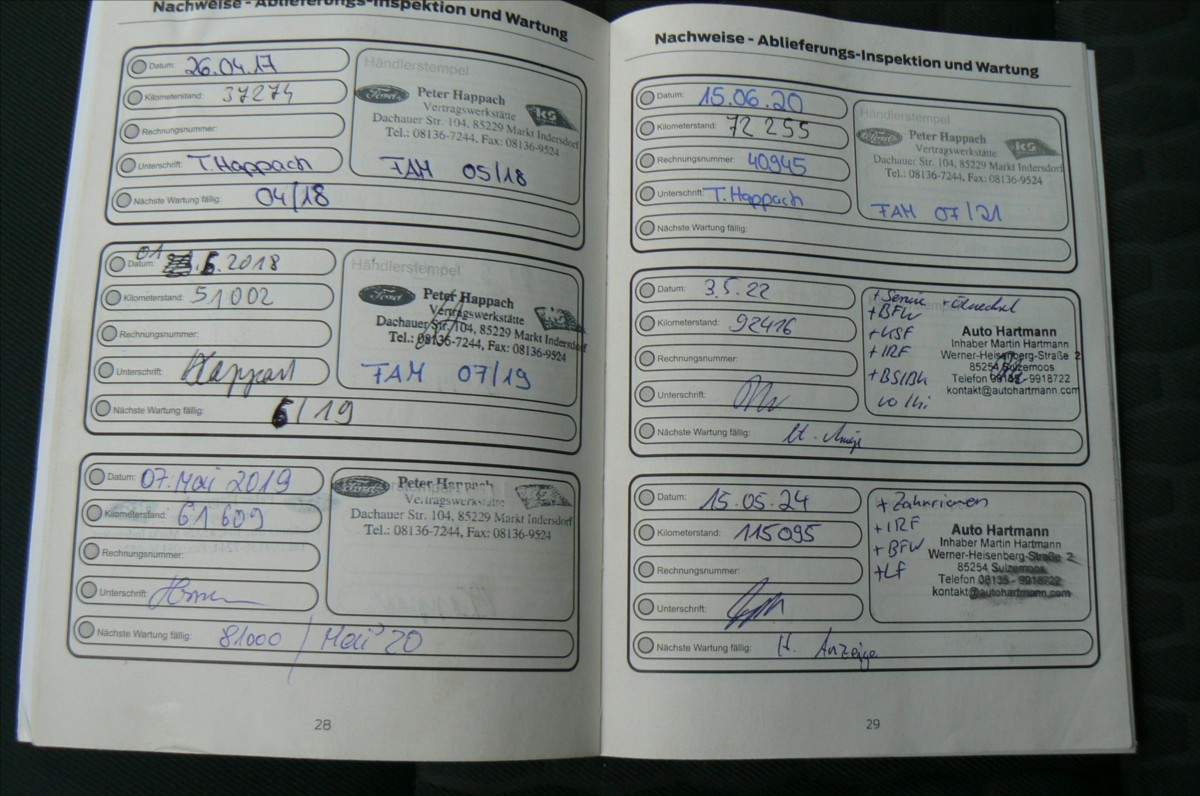 Nachweise - Ablieferungs-Inspektion und Wartung
Datum: 26.04.17
Kilometerstand: 37274
Rechnungsnummer:
Unterschrift: T. Happach
Nächste Wartung fällig: 04/18
Händlerstempel
Ford
Peter Happach
Vertragswerkstätte
Dachauer Str. 104, 85229 Markt Indersdorf
Tel.: 08136-7244, Fax: 08136-9524
FAM 05/18
Datum: 01.6.2018
Kilometerstand: 51002
Rechnungsnummer:
Unterschrift: Happach
Nächste Wartung fällig: 6/19
Händlerstempel
Ford
Peter Happach
Vertragswerkstätte
Dachauer Str. 104, 85229 Markt Indersdorf
Tel.: 08136-7244, Fax: 08136-9524
FAM 07/19
Datum: 07. Mai 2019
Kilometerstand: 61609
Rechnungsnummer:
Unterschrift:
Nächste Wartung fällig: 81000 / Mai 20
Ford
Peter Happach
Vertragswerkstätte
Dachauer Str. 104, 85229 Markt Indersdorf
Tel.: 08136-7244, Fax: 08136-9524
28
Nachweise - Ablieferungs-Inspektion und Wartung
Datum: 15.06.20
Kilometerstand: 72255
Rechnungsnummer: 40945
Unterschrift: T. Happach
Nächste Wartung fällig:
Händlerstempel
Ford
Peter Happach
Vertragswerkstätte
Dachauer Str. 104, 85229 Markt Indersdorf
Tel.: 08136-7244, Fax: 08136-9524
FAM 07/21
Datum: 3.5.22
Kilometerstand: 92416
Rechnungsnummer:
Unterschrift:
Nächste Wartung fällig:
+ Service + Ölwechsel
+ BFW
+ IRF
Auto Hartmann
Inhaber Martin Hartmann
Werner-Heisenberg-Straße 2
85254 Sulzemoos
Telefon 08135 - 9918722
kontakt@autohartmann.com
Datum: 15.05.24
Kilometerstand: 115095
Rechnungsnummer:
Unterschrift:
Nächste Wartung fällig: lt. Anzeige
+ Zahnriemen
+ IRF
+ BFW
+ LF
Auto Hartmann
Inhaber Martin Hartmann
Werner-Heisenberg-Straße 2
85254 Sulzemoos
Telefon 08135 - 9918722
kontakt@autohartmann.com
29